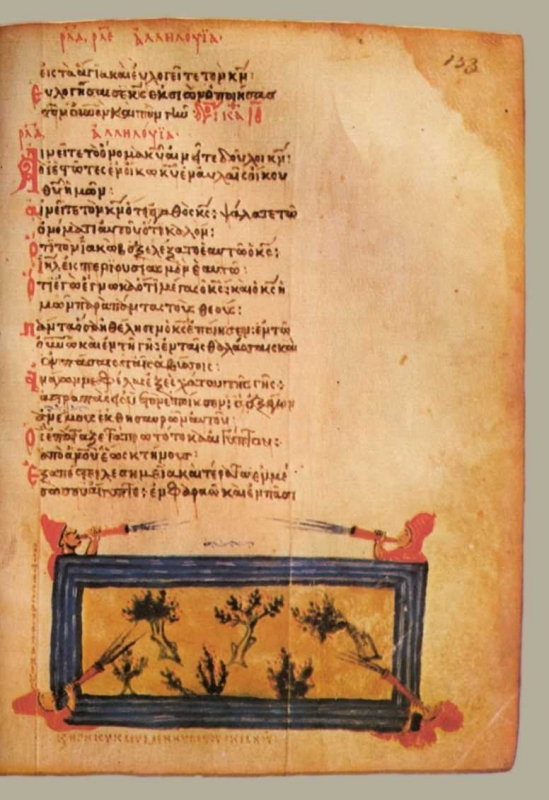 ρλδ, ρλε ἀλληλούϊα·
153
εἰς τὰ ἅγια καὶ εὐλογεῖτε τὸν κν̄·
Εὐλογήσαι σε κς̄ ἐκ σιὼν ὁ ποιήσας
τὸν οὐνον καὶ τὴν γῆν·
ρλδ ἀλληλούϊα·
Αἰνεῖτε τὸ ὄνομα κῡ αἰνεῖτε δοῦλοι κν̄·
Οἱ ἑστῶτες ἐν οἴκω κῡ ἐν αὐλαῖς οἴκου
θῡ ἡμῶν·
αἰνεῖτε τὸν κν̄ ὅτι ἀγαθὸς κς̄· ψάλατε τῶ
ὀνόματι αὐτοῦ ὅτι καλόν·
ὅτι τὸν ἰακὼβ ἐξελέξατο ἑαυτῶ ὁ κς̄·
ἰηλ̄ εἰς περιουσιασμὸν ἑαυτῶ·
ὅτι ἐγὼ ἔγνωκα ὅτι μέγας ὁ κς̄· καὶ ὁ κς̄ ἡ
μῶν παρὰ πάντας τοὺς θεούς·
πάντα ὅσα ἠθέλησεν ὁ κς̄ ἐποίησεν· ἐν τῶ
οὐνω καὶ ἐν τῇ γῇ· ἐν ταῖς θαλάσσαις καὶ
ἐν πάσαις ταῖς ἀβύσσοις·
ἀνάγων νεφέλας ἐξ ἐσχάτου τῆς γῆς·
ἀστραπὰς εἰς ὑετὸν ἐποίησεν· ὁ ἐξάγων
ἀνέμους ἐκ θησαυρῶν αὐτοῦ·
ὃς ἐπάταξε τὰ πρωτότοκα αἰγύπτου·
ἀπὸ ἀνου ἕως κτήνους·
Ἐξαπέστειλε σημεῖα καὶ τέρατα ἐν μέ
σω σου αἴγυπτε· ἐν φαραὼ καὶ ἐν πᾶσι